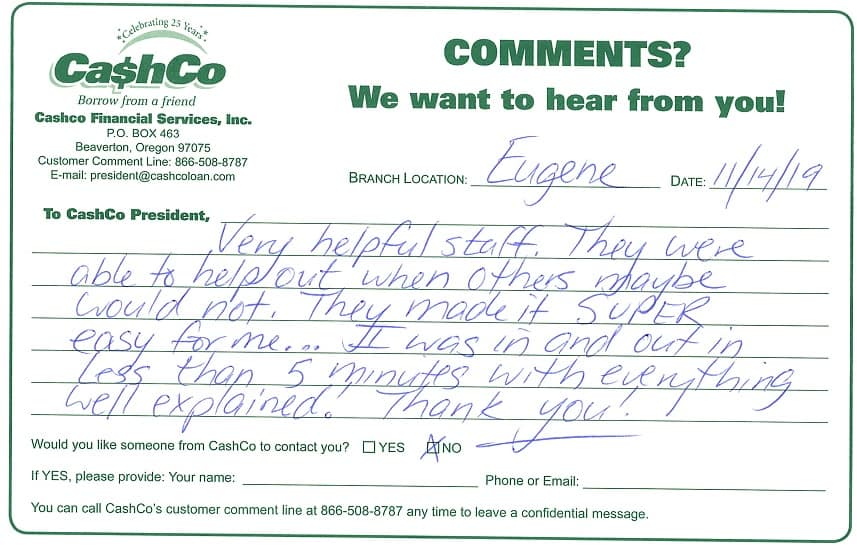 Celebrating 25 Years
Ca$hCo
Borrow from a friend
Cashco Financial Services, Inc.
P.O. BOX 463
Beaverton, Oregon 97075
Customer Comment Line: 866-508-8787
E-mail: president@cashcoloan.com
COMMENTS?
We want to hear from you!
BRANCH LOCATION: Eugene DATE: 11/14/19
To CashCo President,
Very helpful staff. They were
able to help out when others maybe
would not. They made it SUPER
easy for me... I was in and out in
less than 5 minutes with everything
well explained. Thank you!
Would you like someone from CashCo to contact you? YES NO
If YES, please provide: Your name: Phone or Email:
You can call CashCo's customer comment line at 866-508-8787 any time to leave a confidential message.